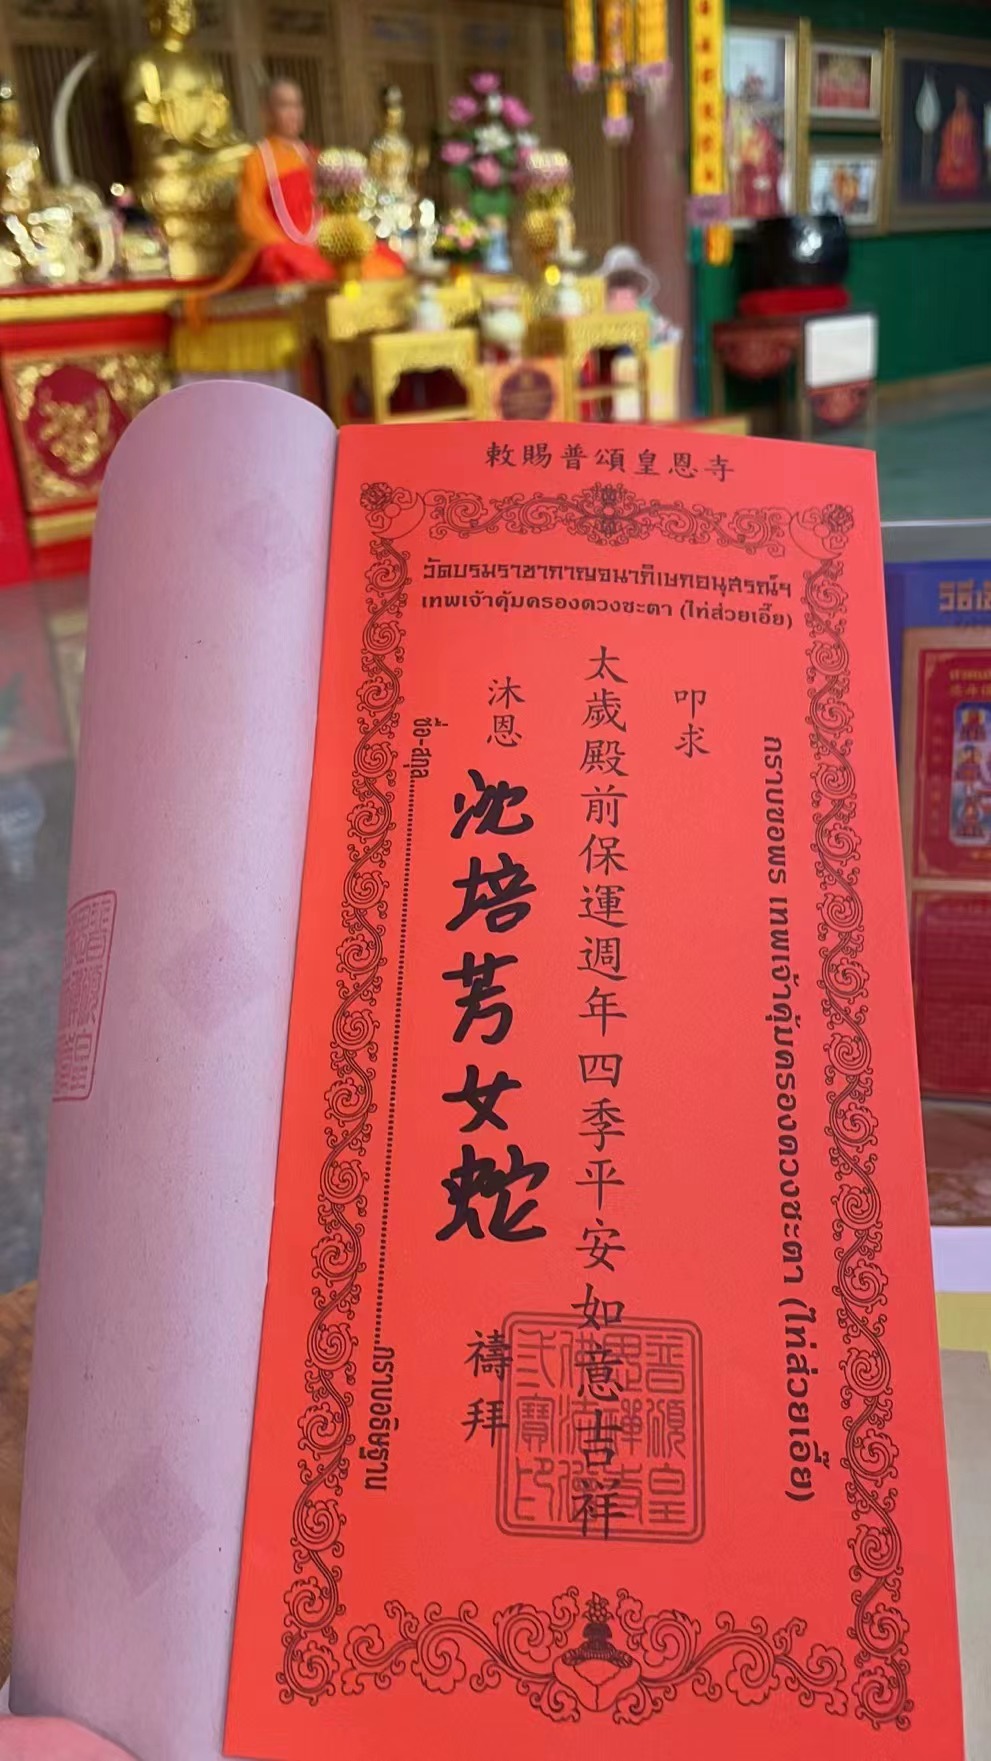 敕賜普頌皇恩寺
วัดบรมราชากาญจนาภิเษกอนุสรณ์ฯ
เทพเจ้าคุ้มครองดวงชะตา (ไท่ส่วยเอี๊ย)
กราบขอพร เทพเจ้าคุ้มครองดวงชะตา (ไท่ส่วยเอี๊ย)
叩求
太歲殿前保運週年四季平安如意吉祥
沐恩
沈培芳女蛇
禱拜
ชื่อ-สกุล
กราบอธิษฐาน